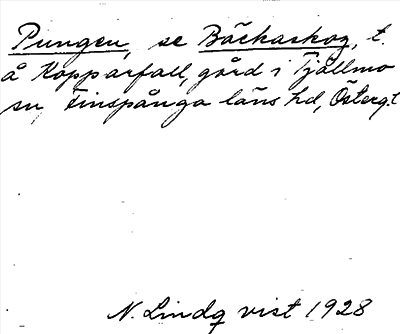 Pungen, se Bäckaskog, t.
å Kopparfall, gård i Tjällmo
sn, Finspånga läns hd, Österg.l
N. Lindqvist 1928